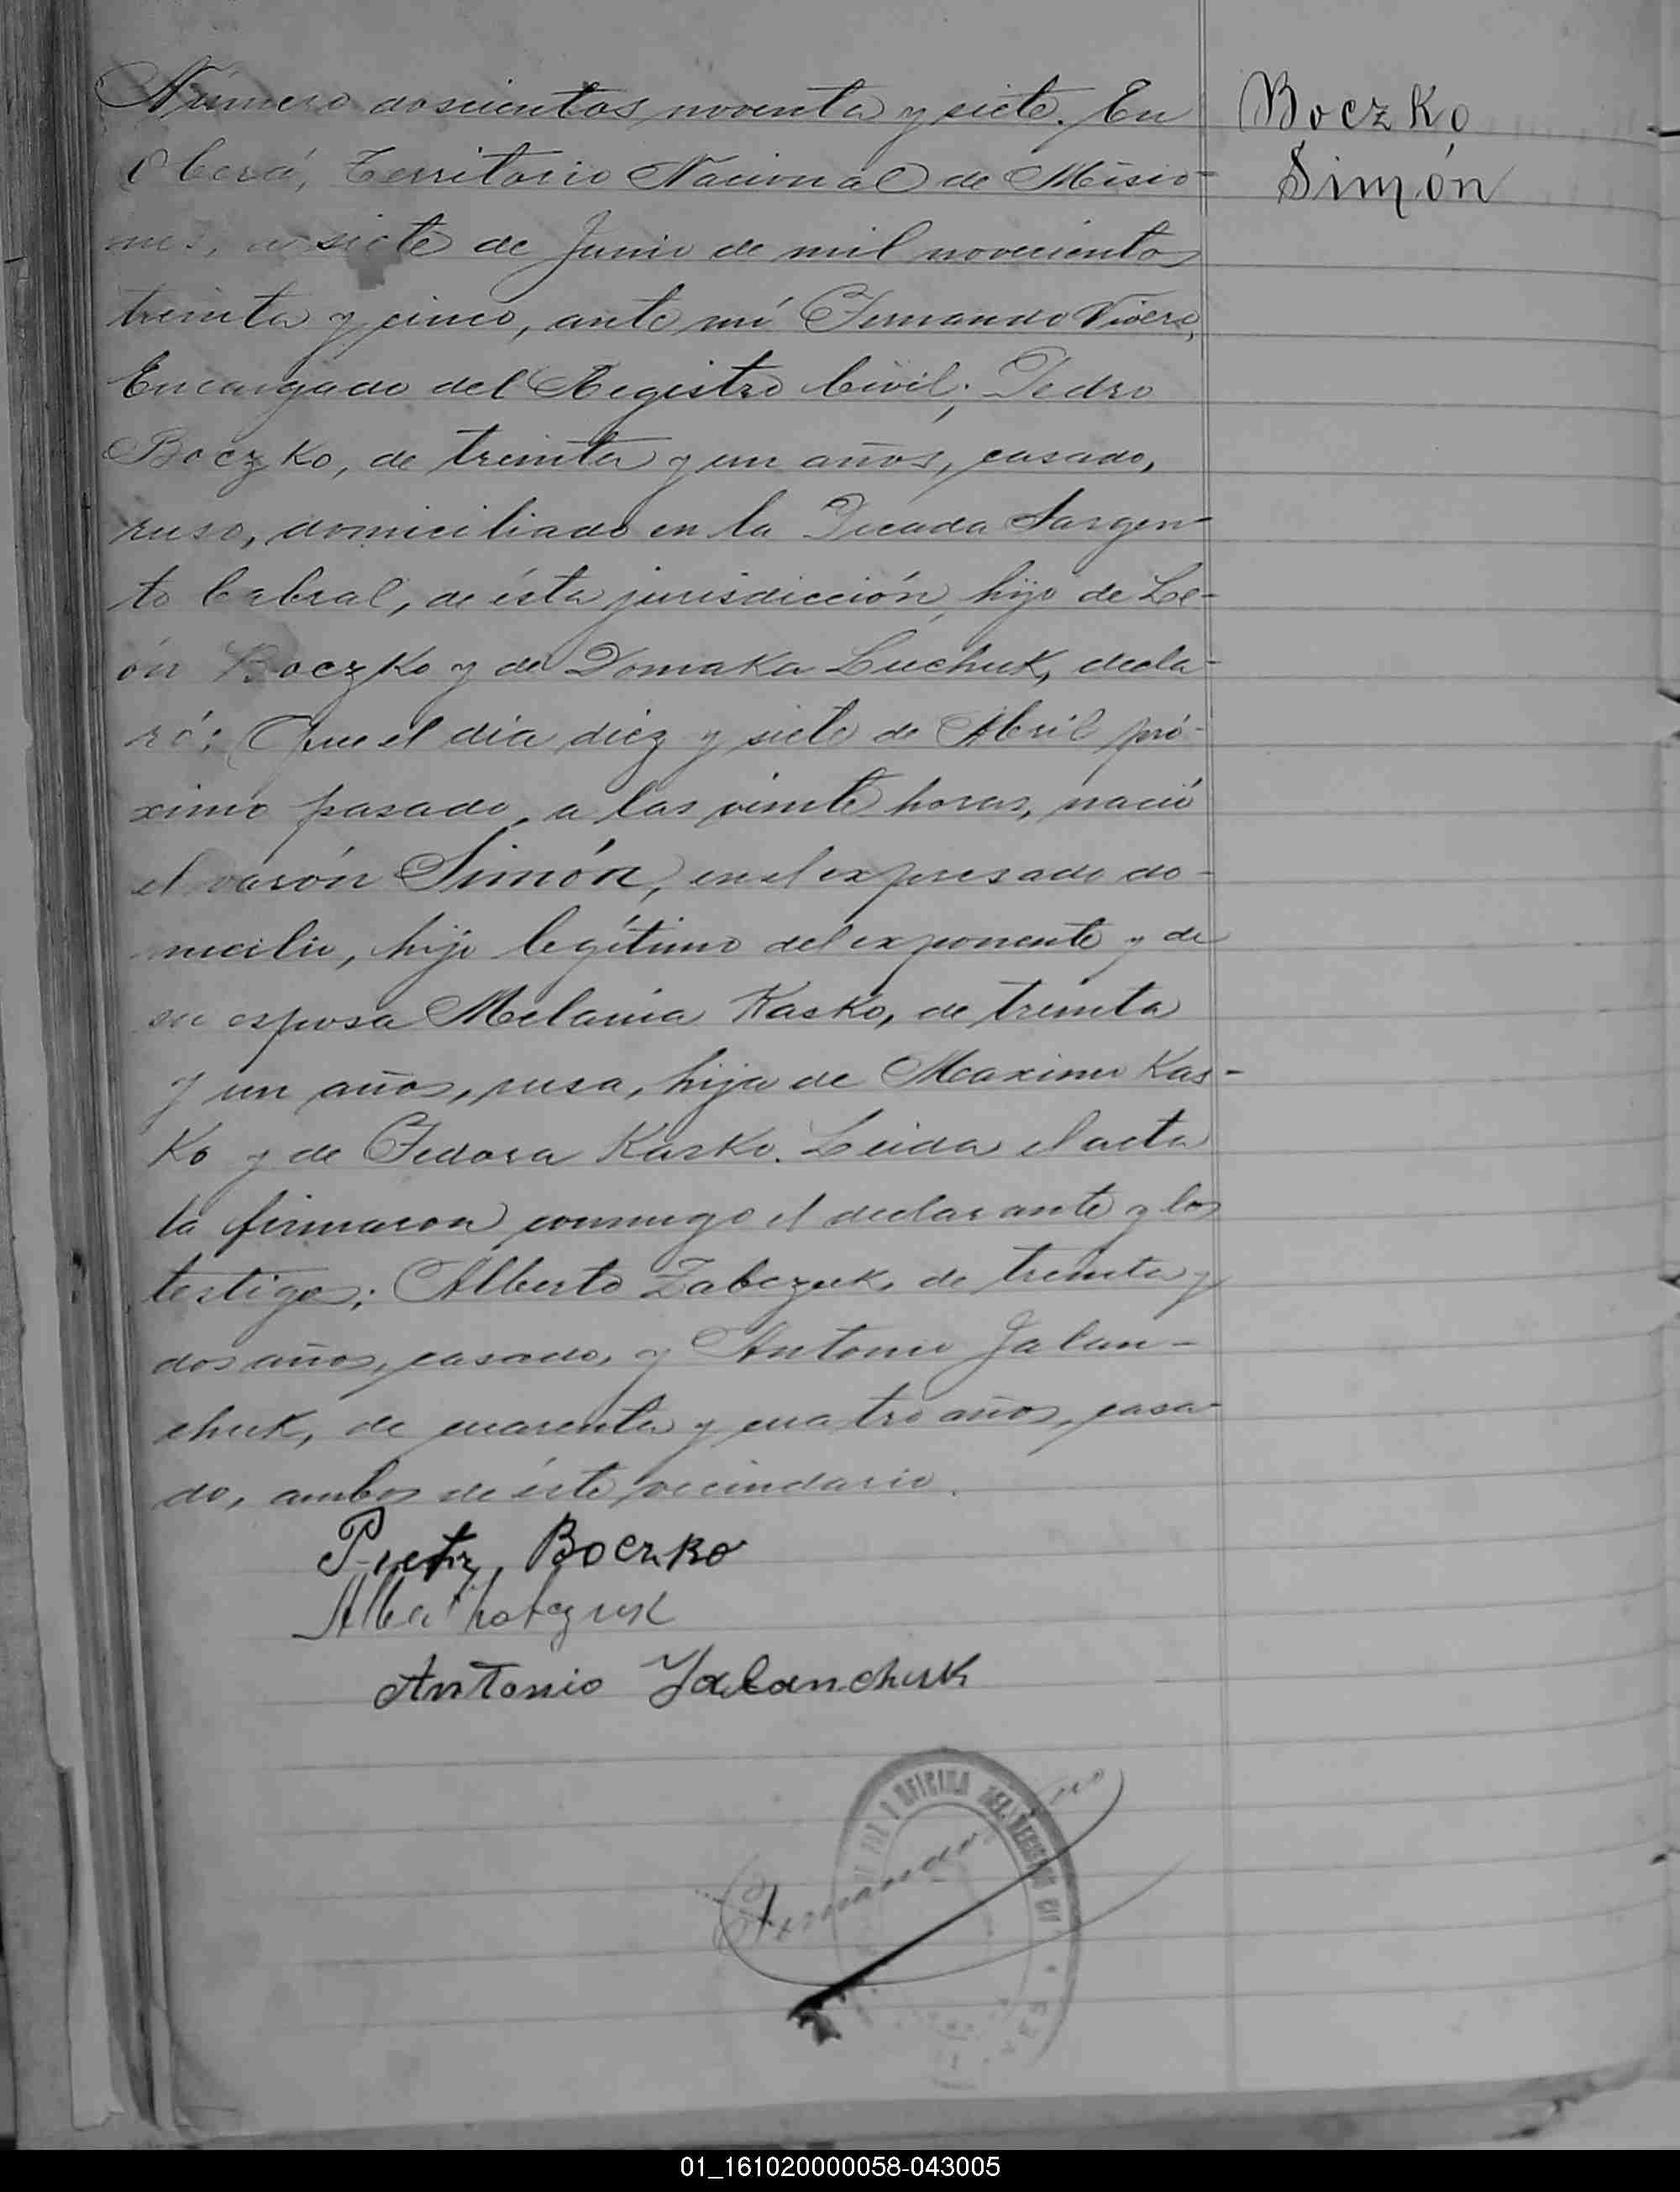 Número doscientos noventa y siete. En
Oberá, Territorio Nacional de Misio-
nes, a siete de Junio de mil novecientos
treinta y cinco, ante mí Fernando Vivero,
Encargado del Registro Civil; Pedro
Boczko, de treinta y un años, casado,
ruso, domiciliado en la Picada Sargen-
to Cabral, de ésta jurisdicción, hijo de Le-
ón Boczko y de Domaka Luchuk, decla-
ró: Que el día diez y siete de Abril pró-
ximo pasado, a las veinte horas, nació
el varón Simón, en el expresado do-
micilio, hijo legítimo del exponente y de
su esposa Melania Kasko, de treinta
y un años, rusa, hija de Maximo Kas-
ko y de Fedora Kasko. Leida el acta
la firmaron conmigo el declarante y los
testigos: Alberto Zabczuk, de treinta y
dos años, casado, y Antonio Jalan-
chuk, de cuarenta y cuatro años, casa-
do, ambos de éste vecindario.
Boczko
Antonio Jalanchuk
OFICINA DEL REGISTRO CIV
Fernando
Boczko
Simón
01_161020000058-043005